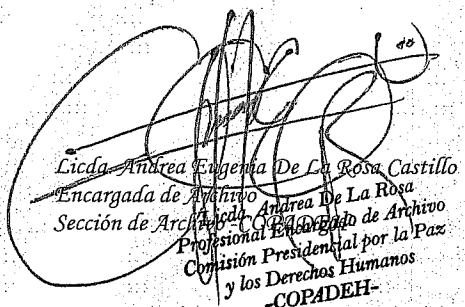 Licda. Andrea Eugenia De La Rosa Castillo
Encargada de Archivo
Sección de Archivo -COPADEH-
Licda. Andrea De La Rosa
Profesional Encargado de Archivo
Comisión Presidencial por la Paz
y los Derechos Humanos
-COPADEH-